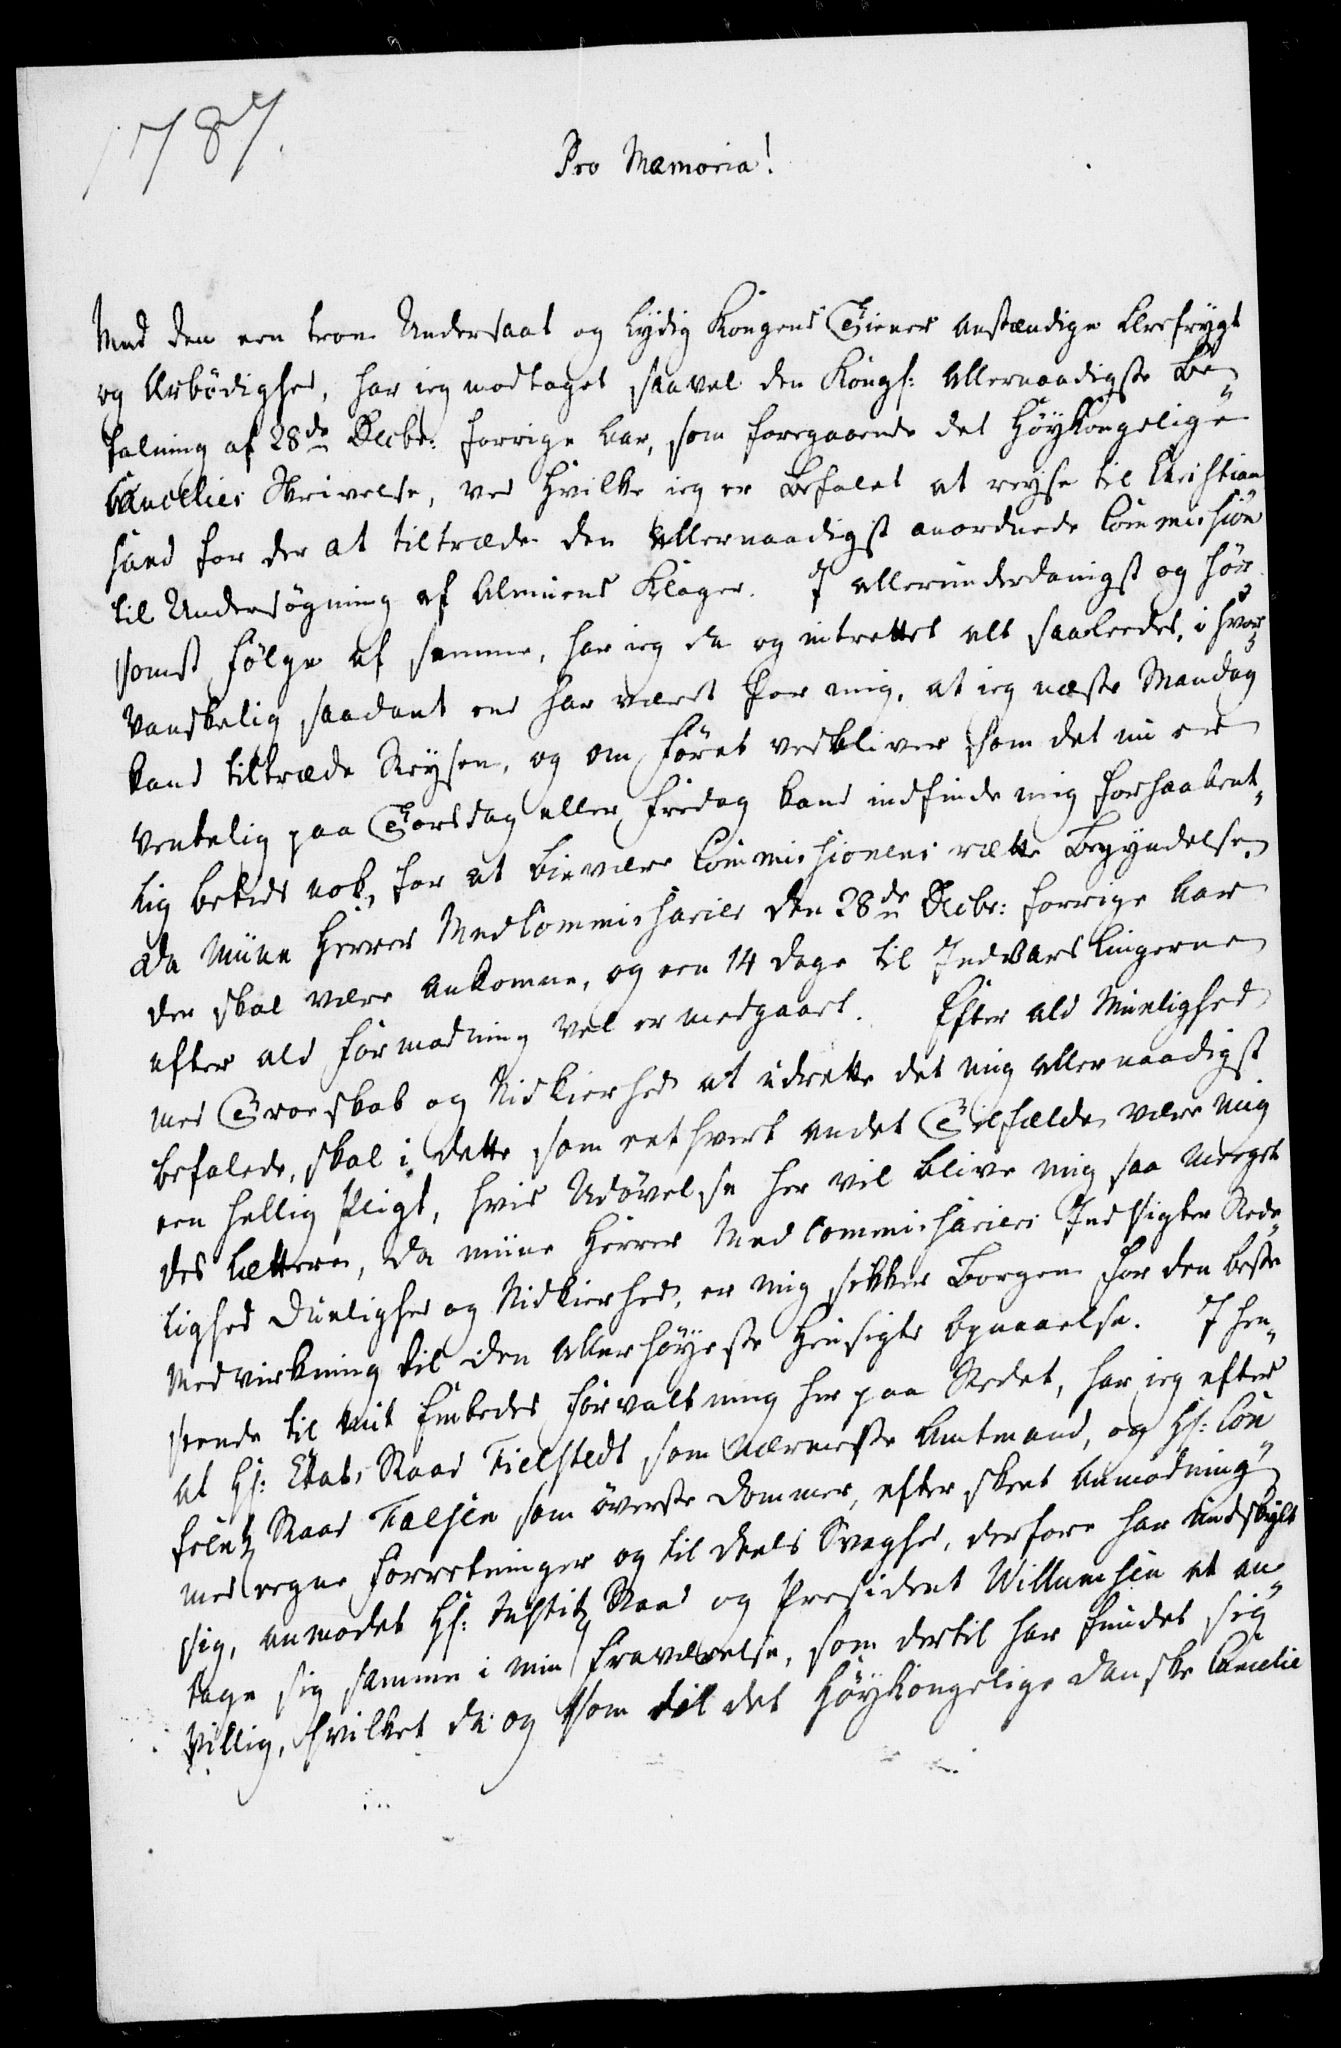 1787.
Pro Memoria!
Med den een troe Undersaat og lydig Kongens Tiener anstændige Ærefrygt
og Ærbödighed, har ieg modtaget saavel den Kongl: allernaadigste Be„
faling af 28de Decbr: forrige Aar, som foregaaende det Höykongelige
Cancelies Skrivelse, ved hvilke ieg er befalet at reyse til Christian
sand for der at tiltræde den allernaadigst anordnede Commission
til Undersögning af Almuens Klager. I allerunderdanigst og hör„
somst fölge af samme, har ieg da og indrettet alt saaledes, i hvor
vanskelig saadant end har været for mig, at ieg næste Mandag
kand tiltræde Reysen, og om föret vedbliver som det nu er
ventelig paa Torsdag eller Fredag kand indfinde mig forhaabent„
lig betids nok, for at bievære Commissionens rette Begyndelse.
Da Mine Herrer MedCommissarier den 28de Decbr: forrige Aar
der skal være ankomne, og een 14 dage til Indvarslingerne
efter ald formodning vel er medgaaet. Efter ald Muelighed
med Troeskab og Nidkierhed at udrette det mig allernaadigst
befalede, skal i dette som ethvert andet Tilfælde være mig
een hellig Pligt, hvis Udövelse her vil blive mig saa meeget
des lettere, da mine Herrer MedCommissariers Indsigter Rede„
lighed Duelighed og Nidkierhed, er mig sikker Borgen for den beste
Medvirkning til den allerhöyeste Hensigts opnaaelse. I hen„
seende til mit Embedes Forvaltning her paa Stedet, har ieg efter
at Hr: Etats Raad Fielstedt som nærmeste Amtmand, og Hr: Con„
ferentz Raad Falsen som överste Dommer, efter skeet anmodning
med egne Forretninger og til deels Svaghed, derfore har undskylt
sig, anmodet Hr: Justitz Raad og President Willumsen at an„
tage sig samme i min fraværelse, som dertil har fundet sig
villig, hvilket da og som til det Höykongelige danske Cancelie